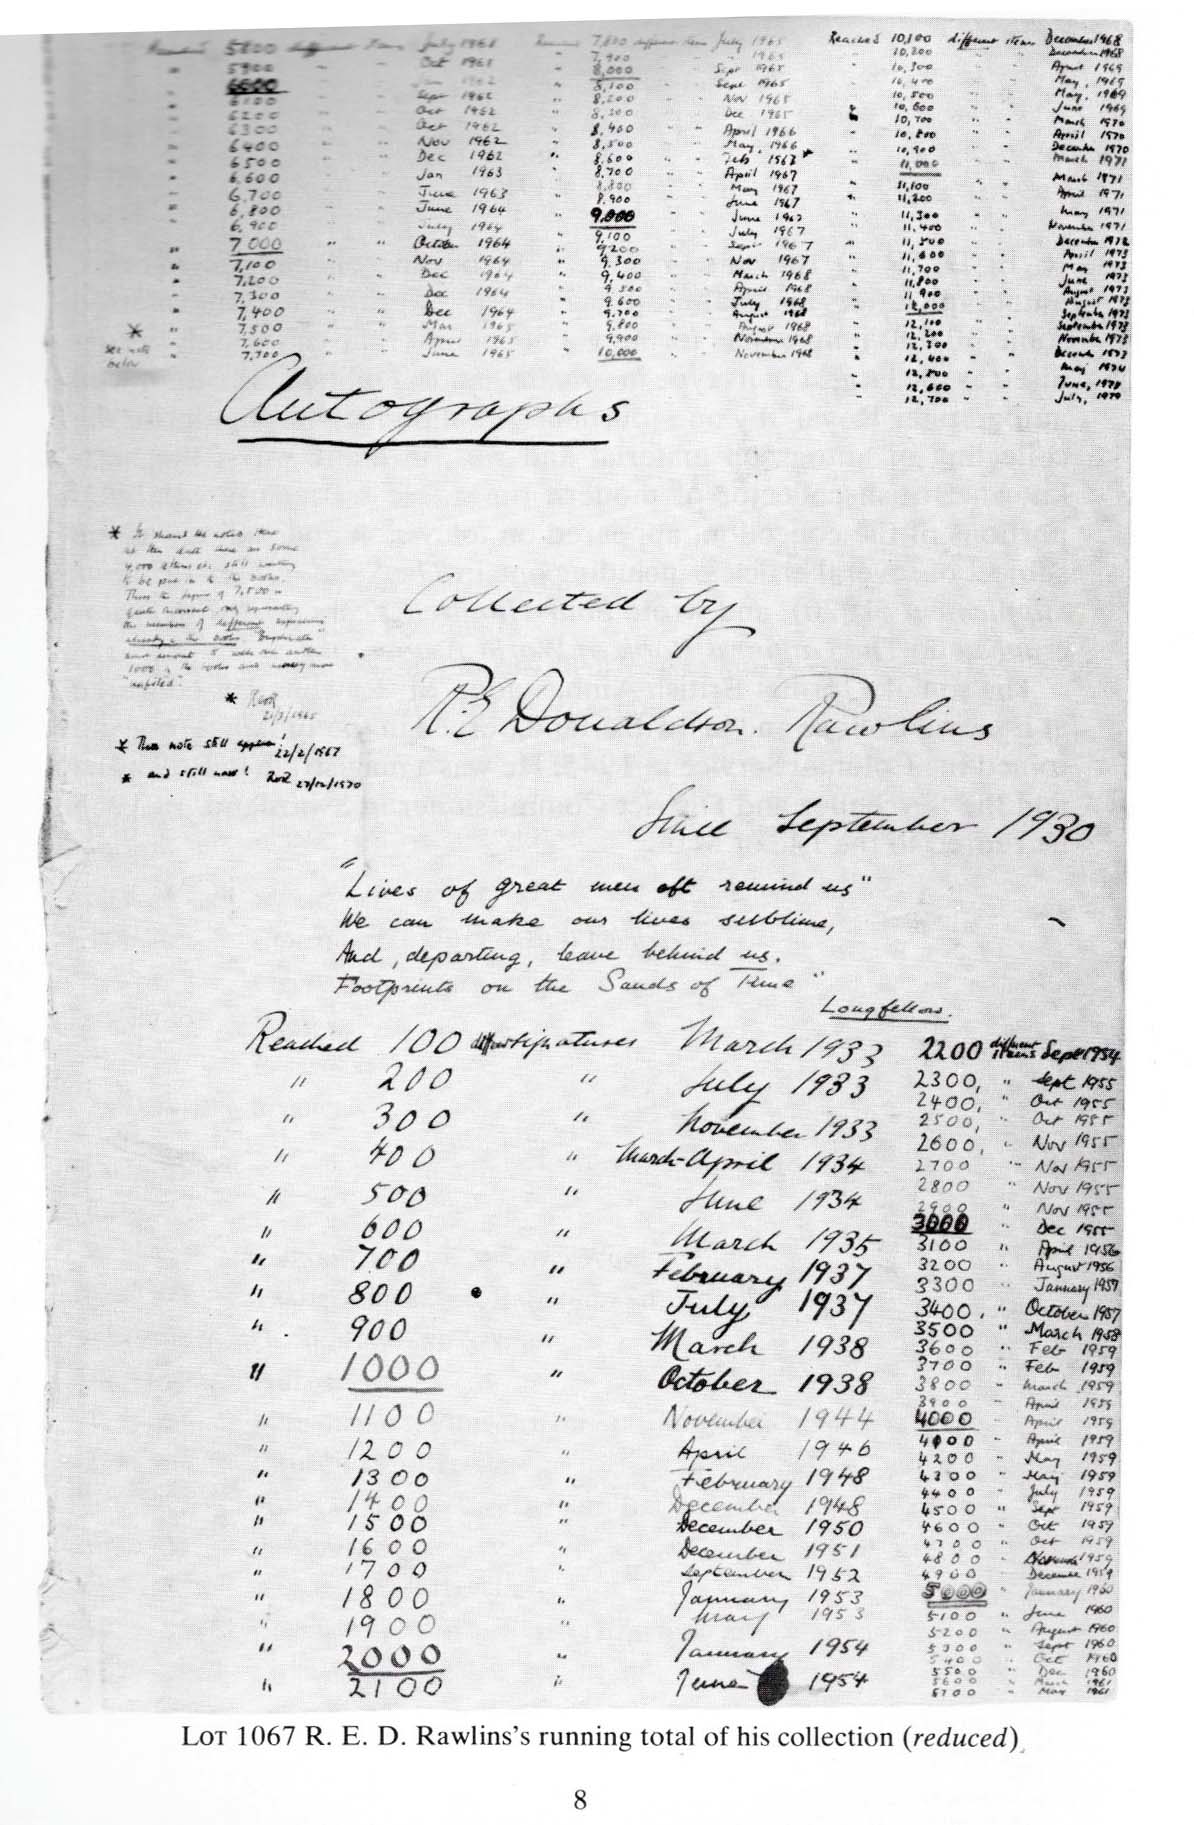 Reached 5800 different items July 1961
" 5900 " " Oct 1961
" 6000 " " Jan 1962
" 6100 " " Sept 1962
" 6200 " " Oct 1962
" 6300 " " Oct 1962
" 6400 " " Nov 1962
" 6500 " " Dec 1962
" 6,600 " " Jan 1963
" 6,700 " " June 1963
" 6,800 " " June 1964
" 6,900 " " July 1964
" 7000 " " October 1964
" 7,100 " " Nov 1964
" 7,200 " " Dec 1964
" 7,300 " " Dec 1964
" 7,400 " " Dec 1964
* " 7,500 " " Mar 1965
see note " 7,600 " " April 1965
below " 7,700 " " June 1965
Reached 7,800 different items July 1965
" 7,900 " " 1965
" 8,000 " " Sept 1965
" 8,100 " " Sept 1965
" 8,200 " " Nov 1965
" 8,300 " " Dec 1965
" 8,400 " " April 1966
" 8,500 " " May, 1966
" 8,600 " " Feb 1967
" 8,700 " " April 1967
" 8,800 " " May 1967
" 8,900 " " June 1967
" 9,000 " " June 1967
" 9,100 " " July 1967
" 9,200 " " Sept 1967
" 9,300 " " Nov 1967
" 9,400 " " March 1968
" 9,500 " " April 1968
" 9,600 " " July 1968
" 9,700 " " August 1968
" 9,800 " " August 1968
" 9,900 " " November 1968
" 10,000 " " November 1968
Reached 10,100 different items December 1968
" 10,200 " " December 1968
" 10,300 " " April 1969
" 10,400 " " May, 1969
" 10,500 " " May, 1969
" 10,600 " " June 1969
" 10,700 " " March 1970
" 10,800 " " April 1970
" 10,900 " " December 1970
" 11,000 " " March 1971
" 11,100 " " March 1971
" 11,200 " " April 1971
" 11,300 " " May 1971
" 11,400 " " November 1971
" 11,500 " " December 1972
" 11,600 " " April 1973
" 11,700 " " May 1973
" 11,800 " " June 1973
" 11,900 " " August 1973
" 12,000 " " August 1973
" 12,100 " " September 1973
" 12,200 " " September 1973
" 12,300 " " November 1973
" 12,400 " " December 1973
" 12,500 " " May 1974
" 12,600 " " June, 1974
" 12,700 " " July, 1974
Autographs
* I should note here
at this date there are some
4,000 letters etc. still waiting
to be put in to the books.
Thus the figure of 7,500 is
quite incorrect, only representing
the numbers of different
already in the books "Duplicate"
must amount to well over another
1000 in the books and many more
"unfiled".
* RedR
21/3/1965
* This note still appears! 22/2/1967
* and still now! RedR 27/12/1970
Collected by
R.E Donaldson. Rawlins
Since September 1930
"Lives of great men oft remind us"
We can make our lives sublime,
And, departing, leave behind us.
Footprints on the Sands of Time"
Longfellow.
Reached 100 diff signatures March 1933
" 200 " July 1933
" 300 " November 1933
" 400 " March-April 1934
" 500 " June 1934
" 600 " March 1935
" 700 " February 1937
" 800 " July 1937
" 900 " March 1938
" 1000 " October 1938
" 1100 " November 1944
" 1200 " April 1946
" 1300 " February 1948
" 1400 " December 1948
" 1500 " December 1950
" 1600 " December 1951
" 1700 " September 1952
" 1800 " January 1953
" 1900 " May 1953
" 2000 " January 1954
" 2100 " June 1954
2200 different items Sept 1954
2300, " Sept 1955
2400, " Oct 1955
2500, " Oct 1955
2600, " Nov 1955
2700 " Nov 1955
2800 " Nov 1955
2900 " Nov 1955
3000 " Dec 1955
3100 " April 1956
3200 " August 1956
3300 " January 1957
3400, " October 1957
3500 " March 1958
3600 " Feb 1959
3700 " Feb 1959
3800 " March 1959
3900 " April 1959
4000 " April 1959
4100 " April 1959
4200 " May 1959
4300 " May 1959
4400 " July 1959
4500 " Sept 1959
4600 " Oct 1959
4700 " Oct 1959
4800 " November 1959
4900 " December 1959
5000 " January 1960
5100 " June 1960
5200 " August 1960
5300 " Sept 1960
5400 " Oct 1960
5500 " Dec 1960
5600 " March 1961
5700 " May 1961
LOT 1067 R. E. D. Rawlins's running total of his collection (reduced)
8